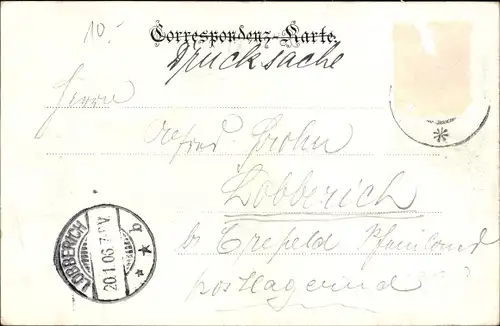 10.-
Correspondenz-Karte.
Drucksache
Herrn
Alfred Frohn
Lobberich
br Crefeld Rheinland
postlagernd
LOBBERICH
20.1.06.7-8V.
* * b
*